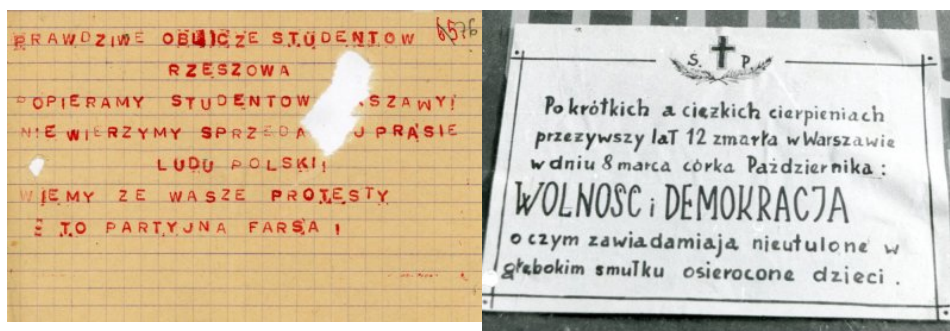 6576
PRAWDZIWE OBLICZE STUDENTOW
RZESZOWA
POPIERAMY STUDENTOW
NIE WIERZYMY PRASIE
LUDU POLSKI!
WIEMY ZE WASZE PROTESTY
TO PARTYJNA FARSA !
Ś. P.
Po krótkich a ciężkich cierpieniach
przeżywszy laT 12 zmarła w Warszawie
w dniu 8 marca córka Października :
WOLNOSC i DEMOKRACJA
o czym zawiadamiają nieutulone w
głębokim smutku osierocone dzieci .